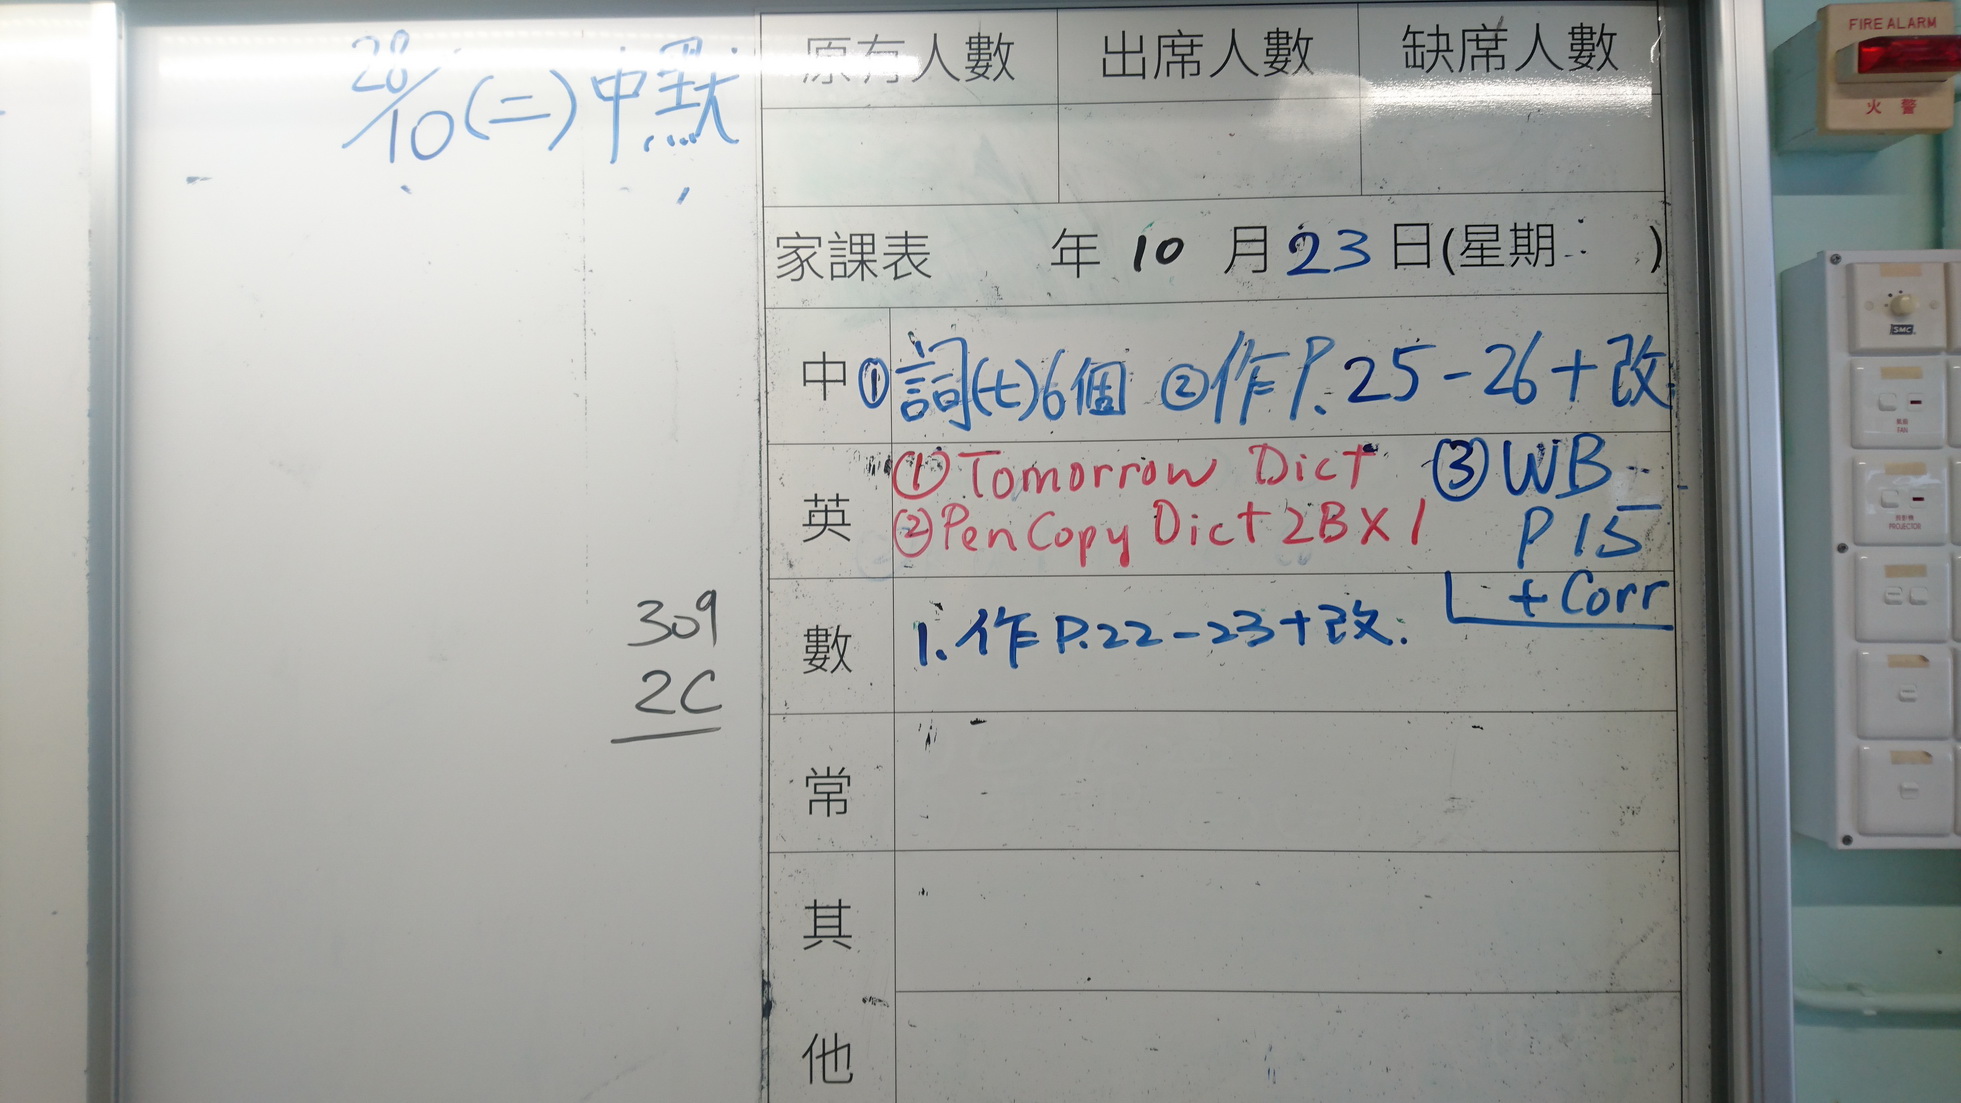 28/10(二)中默
原有人數 出席人數 缺席人數
家課表 年 10 月 23 日(星期 )
中 ①詞(七)6個 ②作P.25-26+改
英 ①Tomorrow Dict ③WB
②Pen Copy Dict 2B X 1 P15
+Corr
數 1.作P.22-23+改.
309
2C
常
其
他
FIRE ALARM
火警
SMC
FAN
PROJECTOR